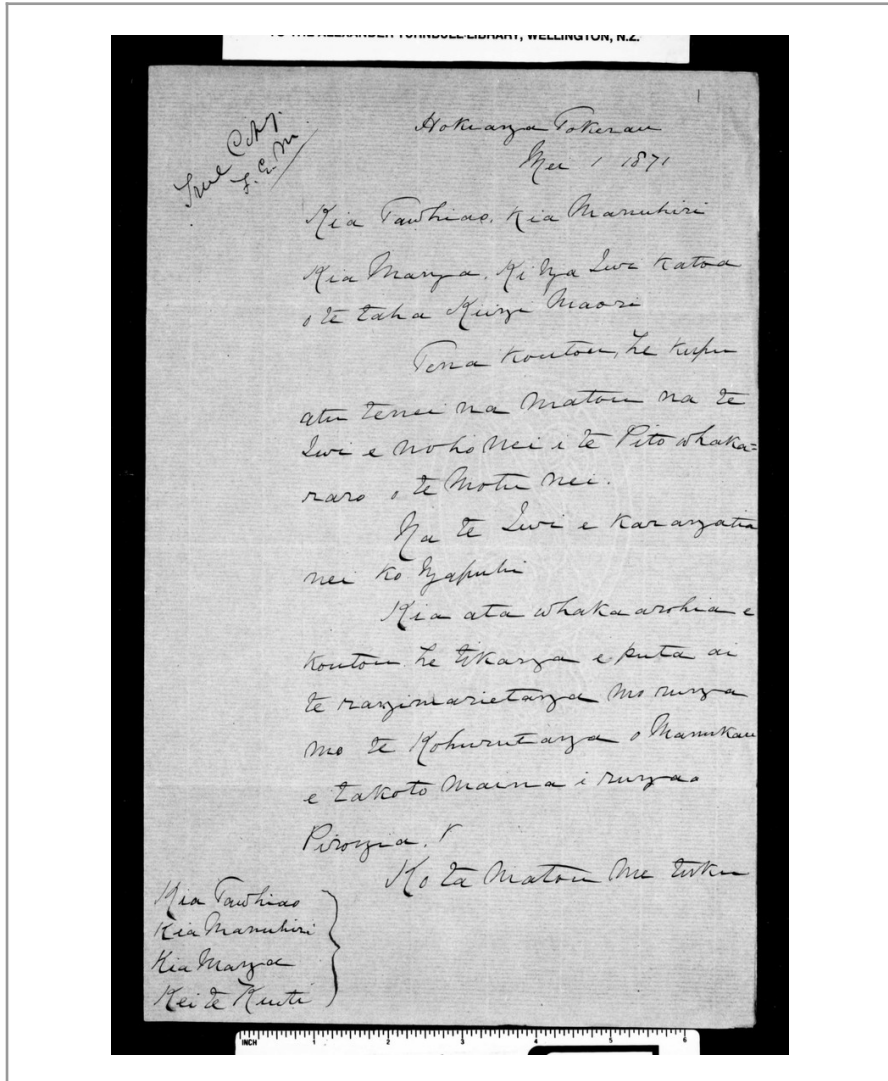 TO THE ALEXANDER TURNBULL LIBRARY, WELLINGTON, N.Z.
1
True Copy.
Hokianga Tokerau
Mei 1 1871
Kia Tawhiao. Kia Manuhiri
Kia Manga. Ki nga Iwi katoa
o te taha Kiingi Maori
Tena koutou, he kupu
atu tenei na matou na te
Iwi e noho nei i te Pito whaka=
raro o te Motu nei.
Na te Iwi e karangatia
nei ko Ngapuhi
Kia ata whakaarohia e
koutou he tikanga e puta ai
te rangimarietanga mo runga
mo te Kohurutanga o Manukau
e takoto maina i runga o
Pirongia.
Ko ta matou me tuku
Kia Tawhiao
Kia Manuhiri
Kia Manga
Kei te Kuiti
INCH 1 2 3 4 5 6